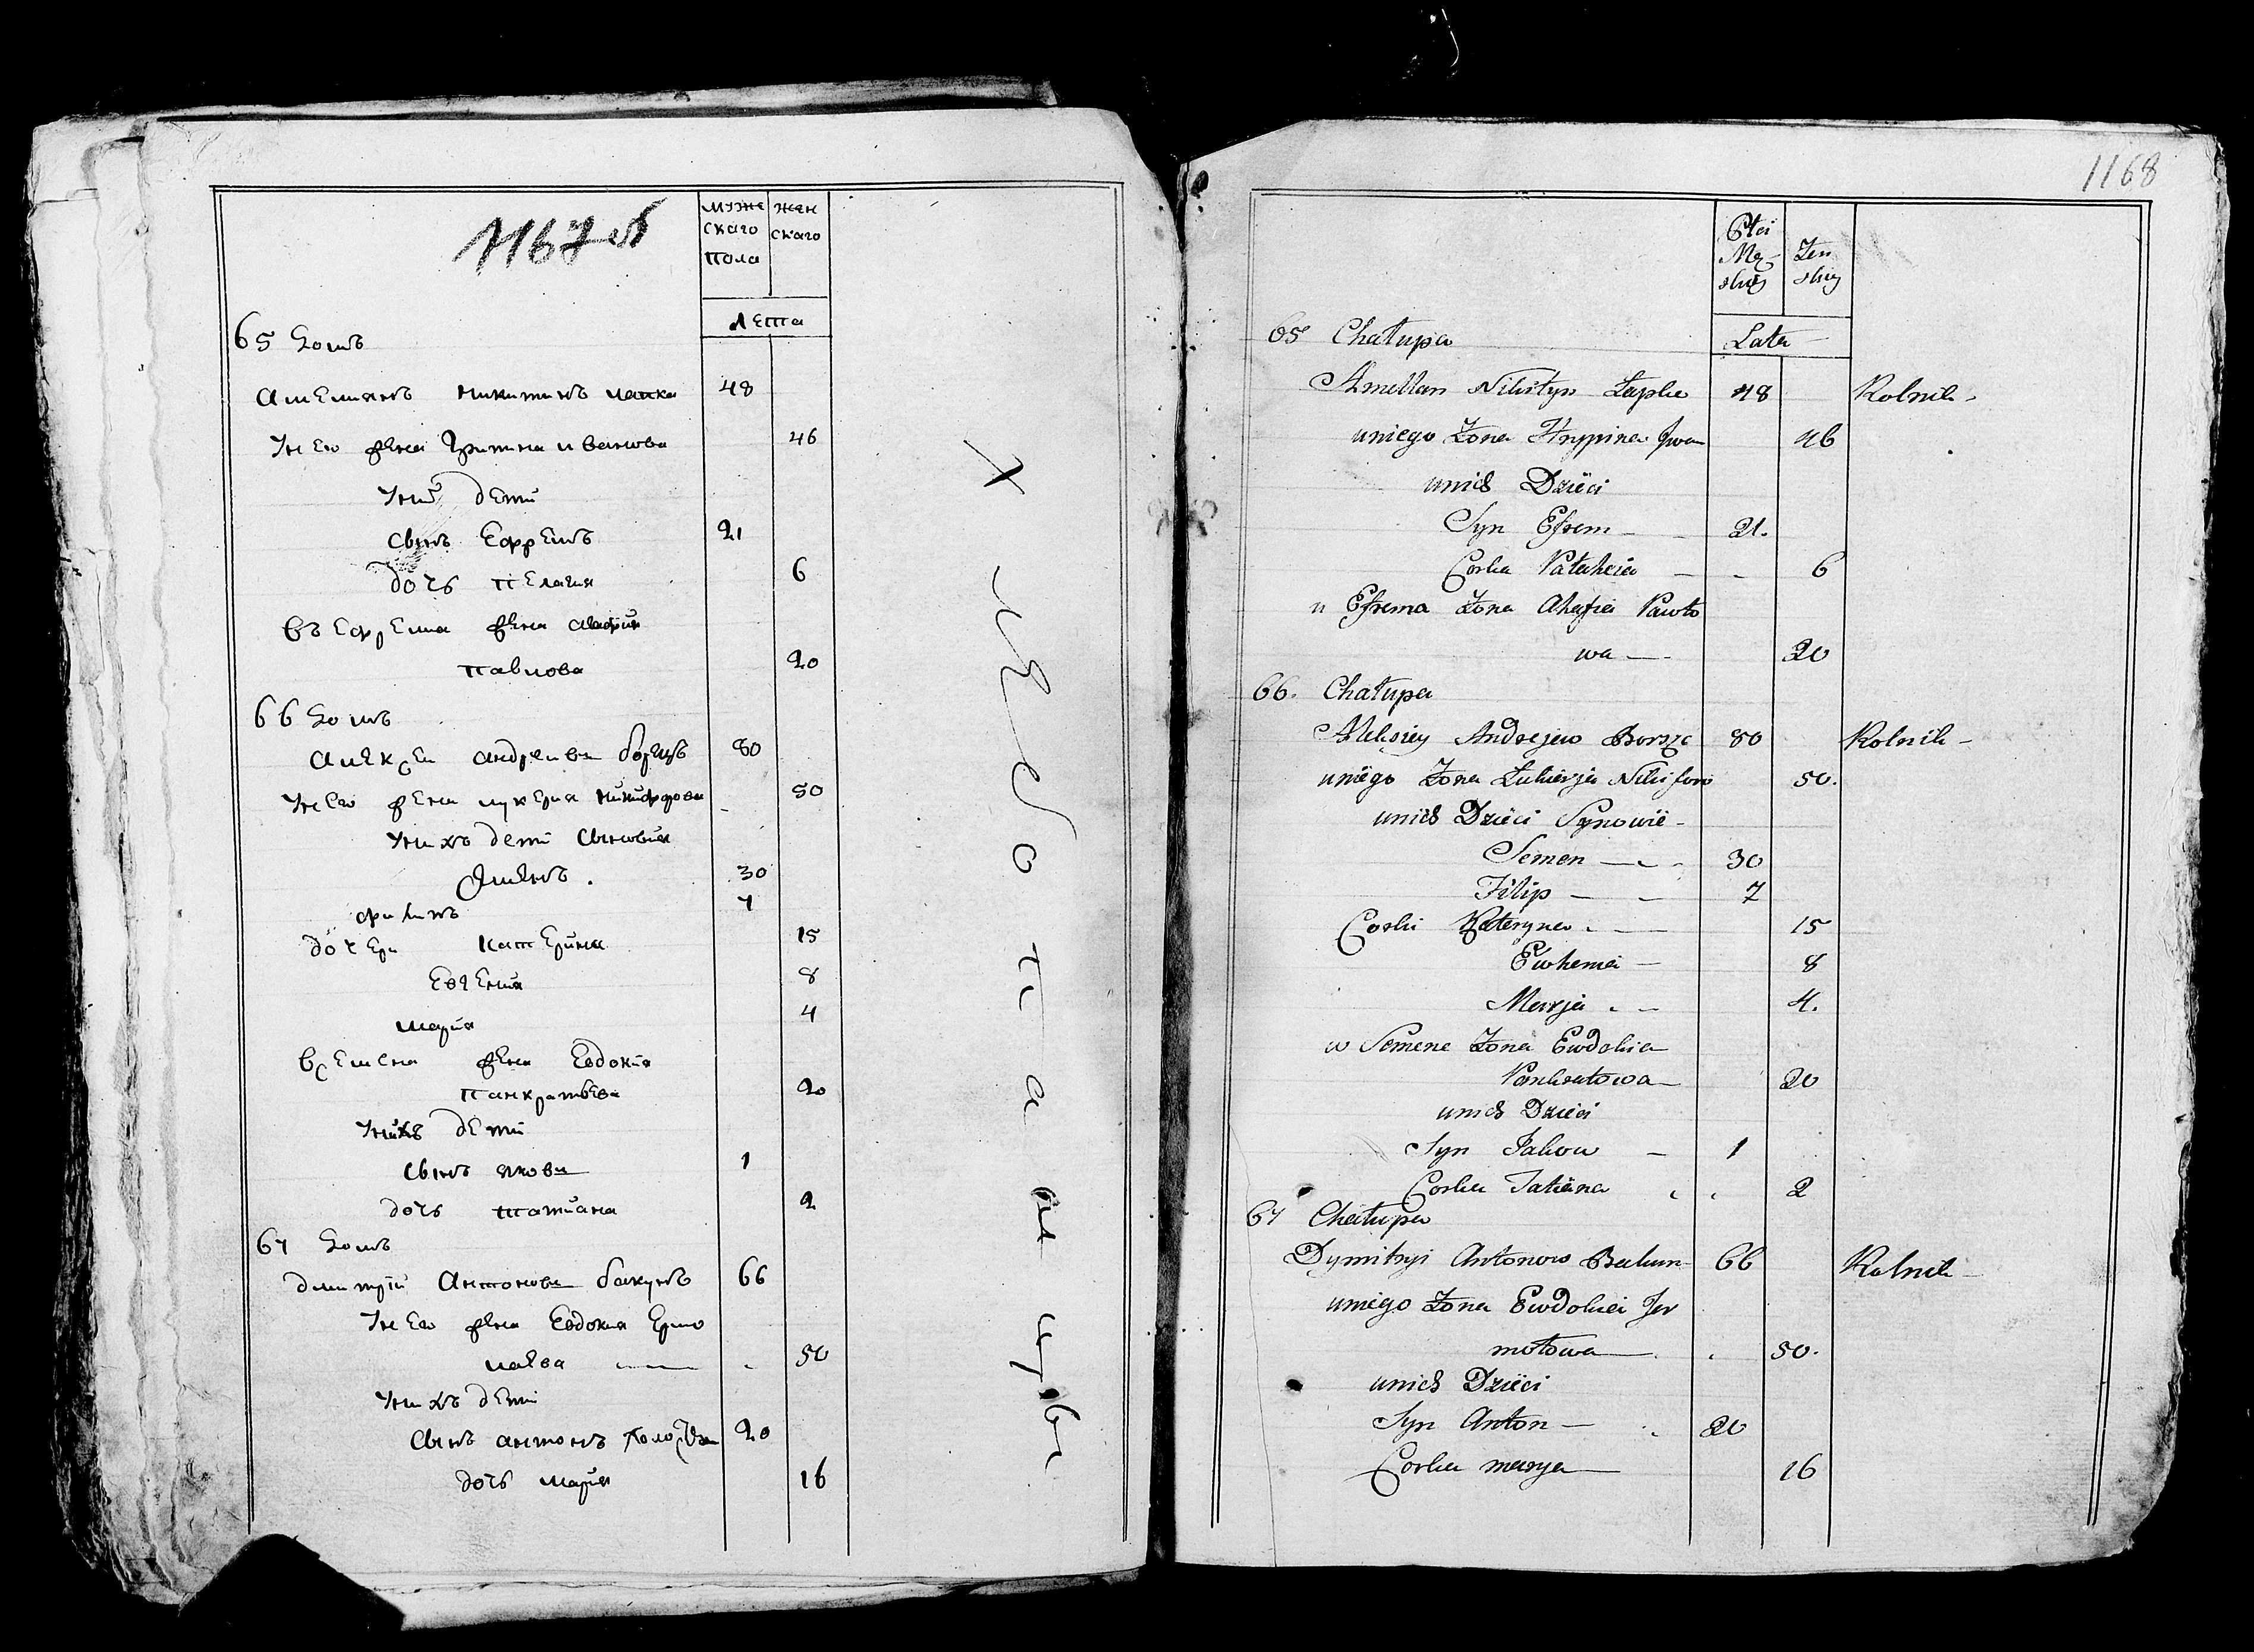 1167 об
муже
скаго
пола
жен
скаго
лета
65 домъ
Амелиянъ Никитинъ лапка 48
У него жена Грипина Иванова 46
У них дети
сынъ Ефремъ 21
дочъ Пелагия 6
въ Ефрема жена Агафия
Павлова 20
66 домъ
Алексеи Андреивъ борщъ 80
У него жена лукерия Никифорова 50
У нихъ дети Сыновия
Симёнъ . 30
Филипъ 7
дочери Катерина 15
Евгения 8
мария 4
в семена жена Евдокия
Панкратьева 20
У нихъ дети
Сынъ яковъ 1
дочъ татиана 2
67 домъ
дмитрий Антоновъ бакунъ 66
У него жена Евдокия Ермо
лаева 50
У нихъ дети
Сынъ антонъ 20
дочъ мария 16
хлебопашцы
1168
Płci
Mę-
skiej
Żeń
skiej
Lata
65 Chałupa
Amelian Nikityn Łapka 48 Rolnik -
uniego Żona Hrypina Iwan 46
unich Dzieci
Syn Efrem - 21.
Corka Pałaheia - - 6
u Efrema Żona Ahafia Pawło
wa - 20
66. Chałupa
Aleksiey Andrejew Borszcz 80 Rolnik -
uniego Żona Łukierja Nikifоro 50.
unich Dzieci Synowie -
Semen - 30
Filip - - 7
Corki Kateryna - 15
Ewhenia - 8
Marja - 4.
w Semene Żona Ewdokia
Pankratowa - 20
unich Dzieci
Syn Jakow - 1
Corka Tatiana 2
67 Chałupa
Dymitryi Antonow Bakun 66 Rolnik -
uniego Żona Ewdokia Jer
mołowa - 50.
unich Dzieci
Syn Anton - 20
Corka marya - 16